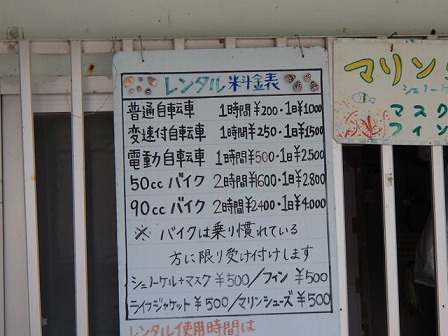 レンタル料金表
普通自転車 1時間¥200・1日¥1000
変速付自転車 1時間¥250・1日¥1500
電動自転車 1時間¥500・1日¥2500
50ccバイク 2時間¥1600・1日¥2800
90ccバイク 2時間¥2400・1日¥4000
※ バイクは乗り慣れている
方に限り受け付けします
シュノーケル+マスク ¥500/フィン ¥500
ライフジャケット ¥500/マリンシューズ ¥500
レンタル使用時間は
マリン
シュノーケ
マスク
フィン